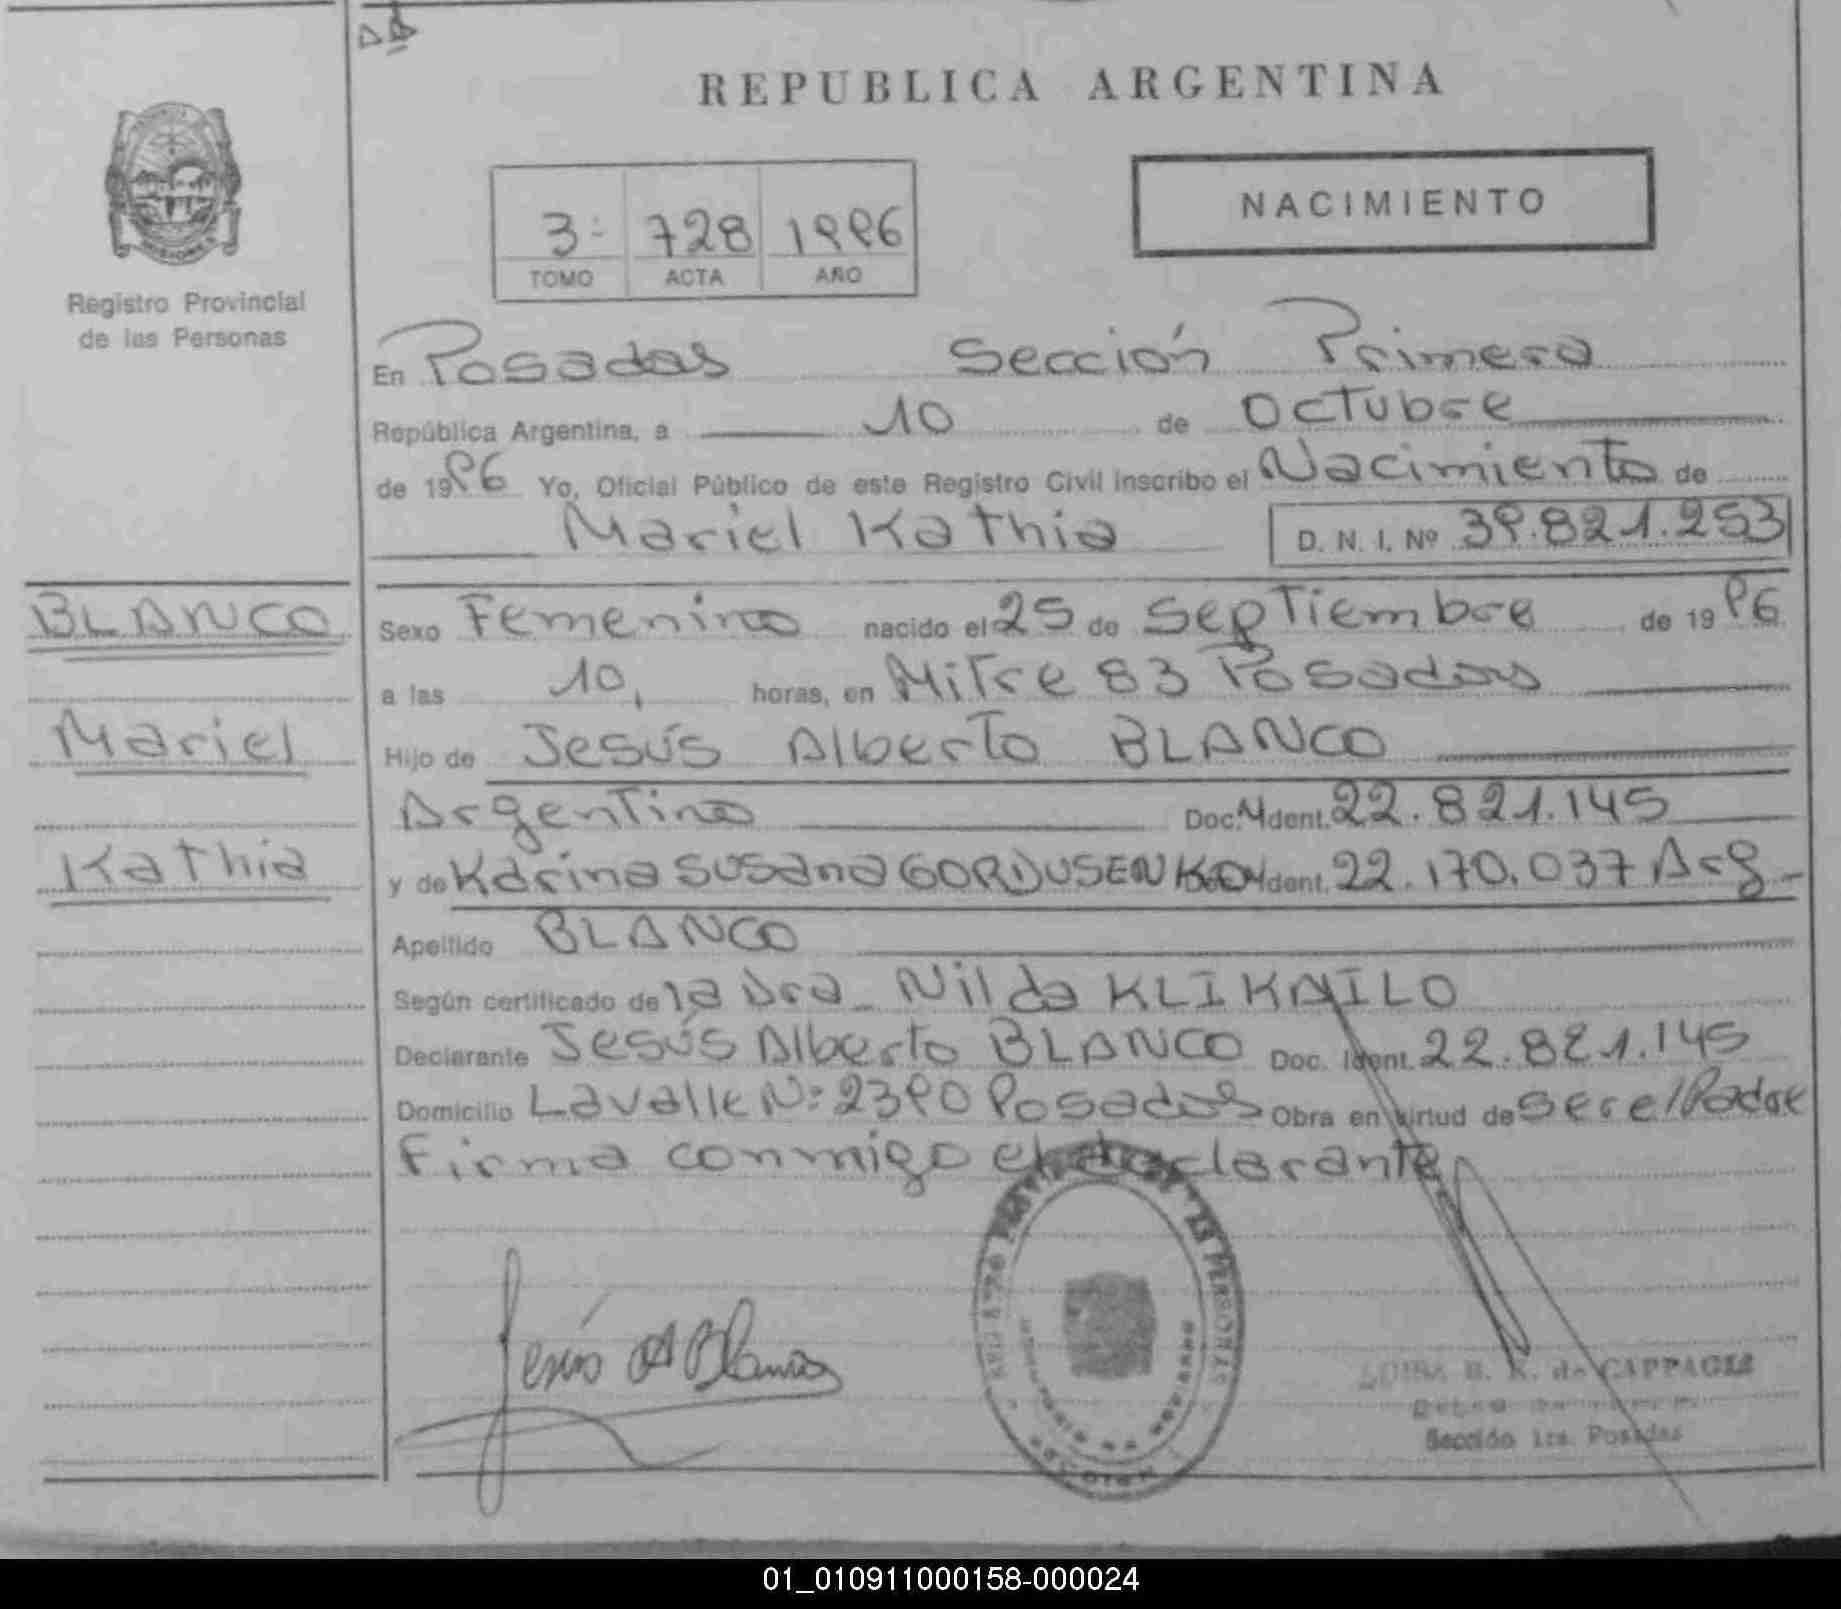 REPUBLICA ARGENTINA
NACIMIENTO
3- 728 1996
TOMO ACTA AÑO
Registro Provincial
de las Personas
En Posadas Sección Primera
República Argentina, a 10 de Octubre
de 1996 Yo, Oficial Público de este Registro Civil inscribo el Nacimiento de
Mariel Kathia D. N. I. Nº 39.821.253
BLANCO
Mariel
Kathia
Sexo Femenino nacido el 25 de Septiembre de 1996
a las 10, horas, en Mitre 83 Posadas
Hijo de Jesús Alberto BLANCO
Argentino Doc. Ident. 22.821.145
y de Karina Susana GORDUSENKO Ident. 22.170.037 Arg-
Apellido BLANCO
Según certificado de la Dra. Nilda KLIKAILO
Declarante Jesús Alberto BLANCO Doc. Ident. 22.821.145
Domicilio Lavalle N: 2390 Posadas Obra en virtud de ser el Padre
Firma conmigo el declarante
Jesús A Blanco
B. K. de CAPPAGLI
Sección 1ra. Posadas
01_010911000158-000024